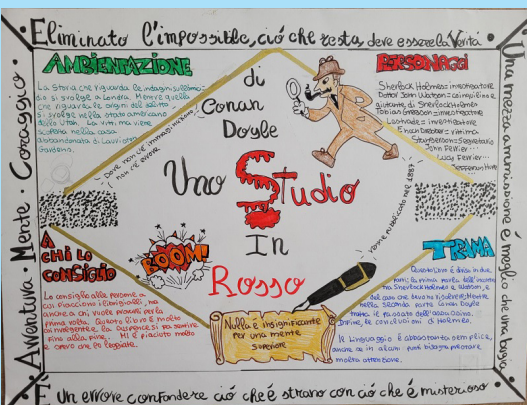 Eliminato l'impossibile, ciò che resta, deve essere la Verità
Una mezza ammissione è meglio di una bugia
Un errore confondere ciò che è strano con ciò che è misterioso
Avventura · Mente · Coraggio ·
AMBIENTAZIONE
La storia che riguarda le indagini
si svolge a Londra. Mentre quella
che riguarda le origini del delitto,
si svolge nello stato americano
dello Utah. La vittima viene
scoperta nella casa
abbandonata di Lauriston
Gardens.
di
Conan
Doyle
PERSONAGGI
Sherlock Holmes: investigatore
Dottor John Watson: coinquilino e
aiutante di Sherlock Holmes
Tobias Gregson: investigatore
Lestrade: investigatore
Enoch Drebber: vittima
Stangerson: Segretario
John Ferrier...
Lucy Ferrier...
Jefferson Hope
Dove non c'è immaginazione
non c'è errore
Uno Studio
In
Rosso
Venne pubblicato nel 1887
A
CHI LO
CONSIGLIO
Lo consiglio alle persone a
cui piacciono i libri gialli, ma
anche a chi vuole provarli per la
prima volta. Questo libro è molto
coinvolgente. La suspense si fa sentire
fino alla fine. Mi è piaciuto molto
e spero che lo leggiate.
BOOM!
Nulla è insignificante
per una mente
superiore
TRAMA
Questo libro è diviso in due
parti: la prima parla dell'incontro
tra Sherlock Holmes e Watson, e
del caso che devono risolvere; Mentre
nella seconda parte Conan Doyle
tratta il passato dell'assassino.
Infine, le conclusioni di Holmes.
Il Linguaggio è abbastanza semplice,
anche se in alcuni punti bisogna prestare
molta attenzione.